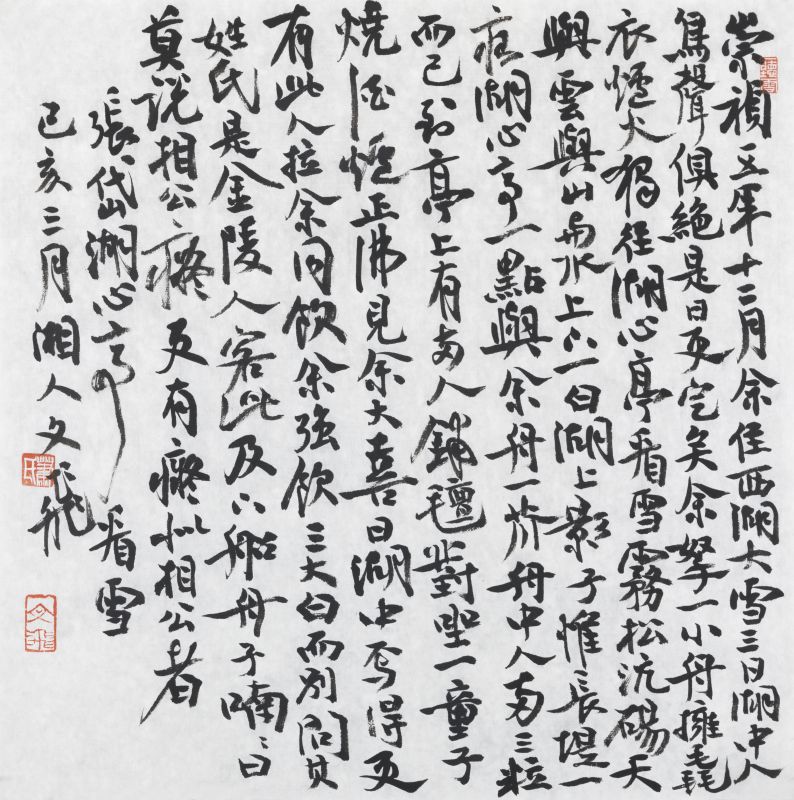 崇禎五年十二月余住西湖大雪三日湖中人
鳥聲俱絕是日更定矣余拏一小舟擁毳
衣爐火獨往湖心亭看雪霧松沆碭天
與雲與山與水上下一白湖上影子惟長堤一
痕湖心亭一點與余舟一芥舟中人兩三粒
而已到亭上有兩人鋪氈對坐一童子
燒酒爐正沸見余大喜曰湖中焉得更
有此人拉余同飲余強飲三大白而別問其
姓氏是金陵人客此及下船舟子喃〻曰
莫說相公癡更有癡似相公者
張岱湖心亭看雪
己亥三月湘人文飛
文飛